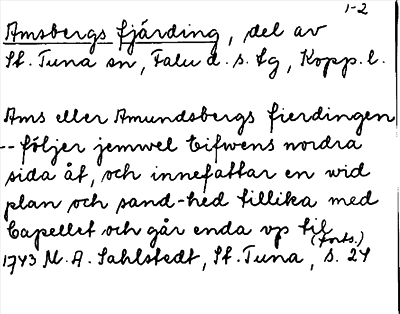 1-2
Amsbergs fjärding, del av
St. Tuna sn, Falu d. s. lg, Kopp. l.
Ams eller Amundsbergs fierdingen
-- följer jemwel Elfwens nordra
sida åt, och innefattar en wid
plan och sand-hed tillika med
Capellet och går enda vp til
(forts.)
1743 M. A. Sahlstedt, St. Tuna, s. 24